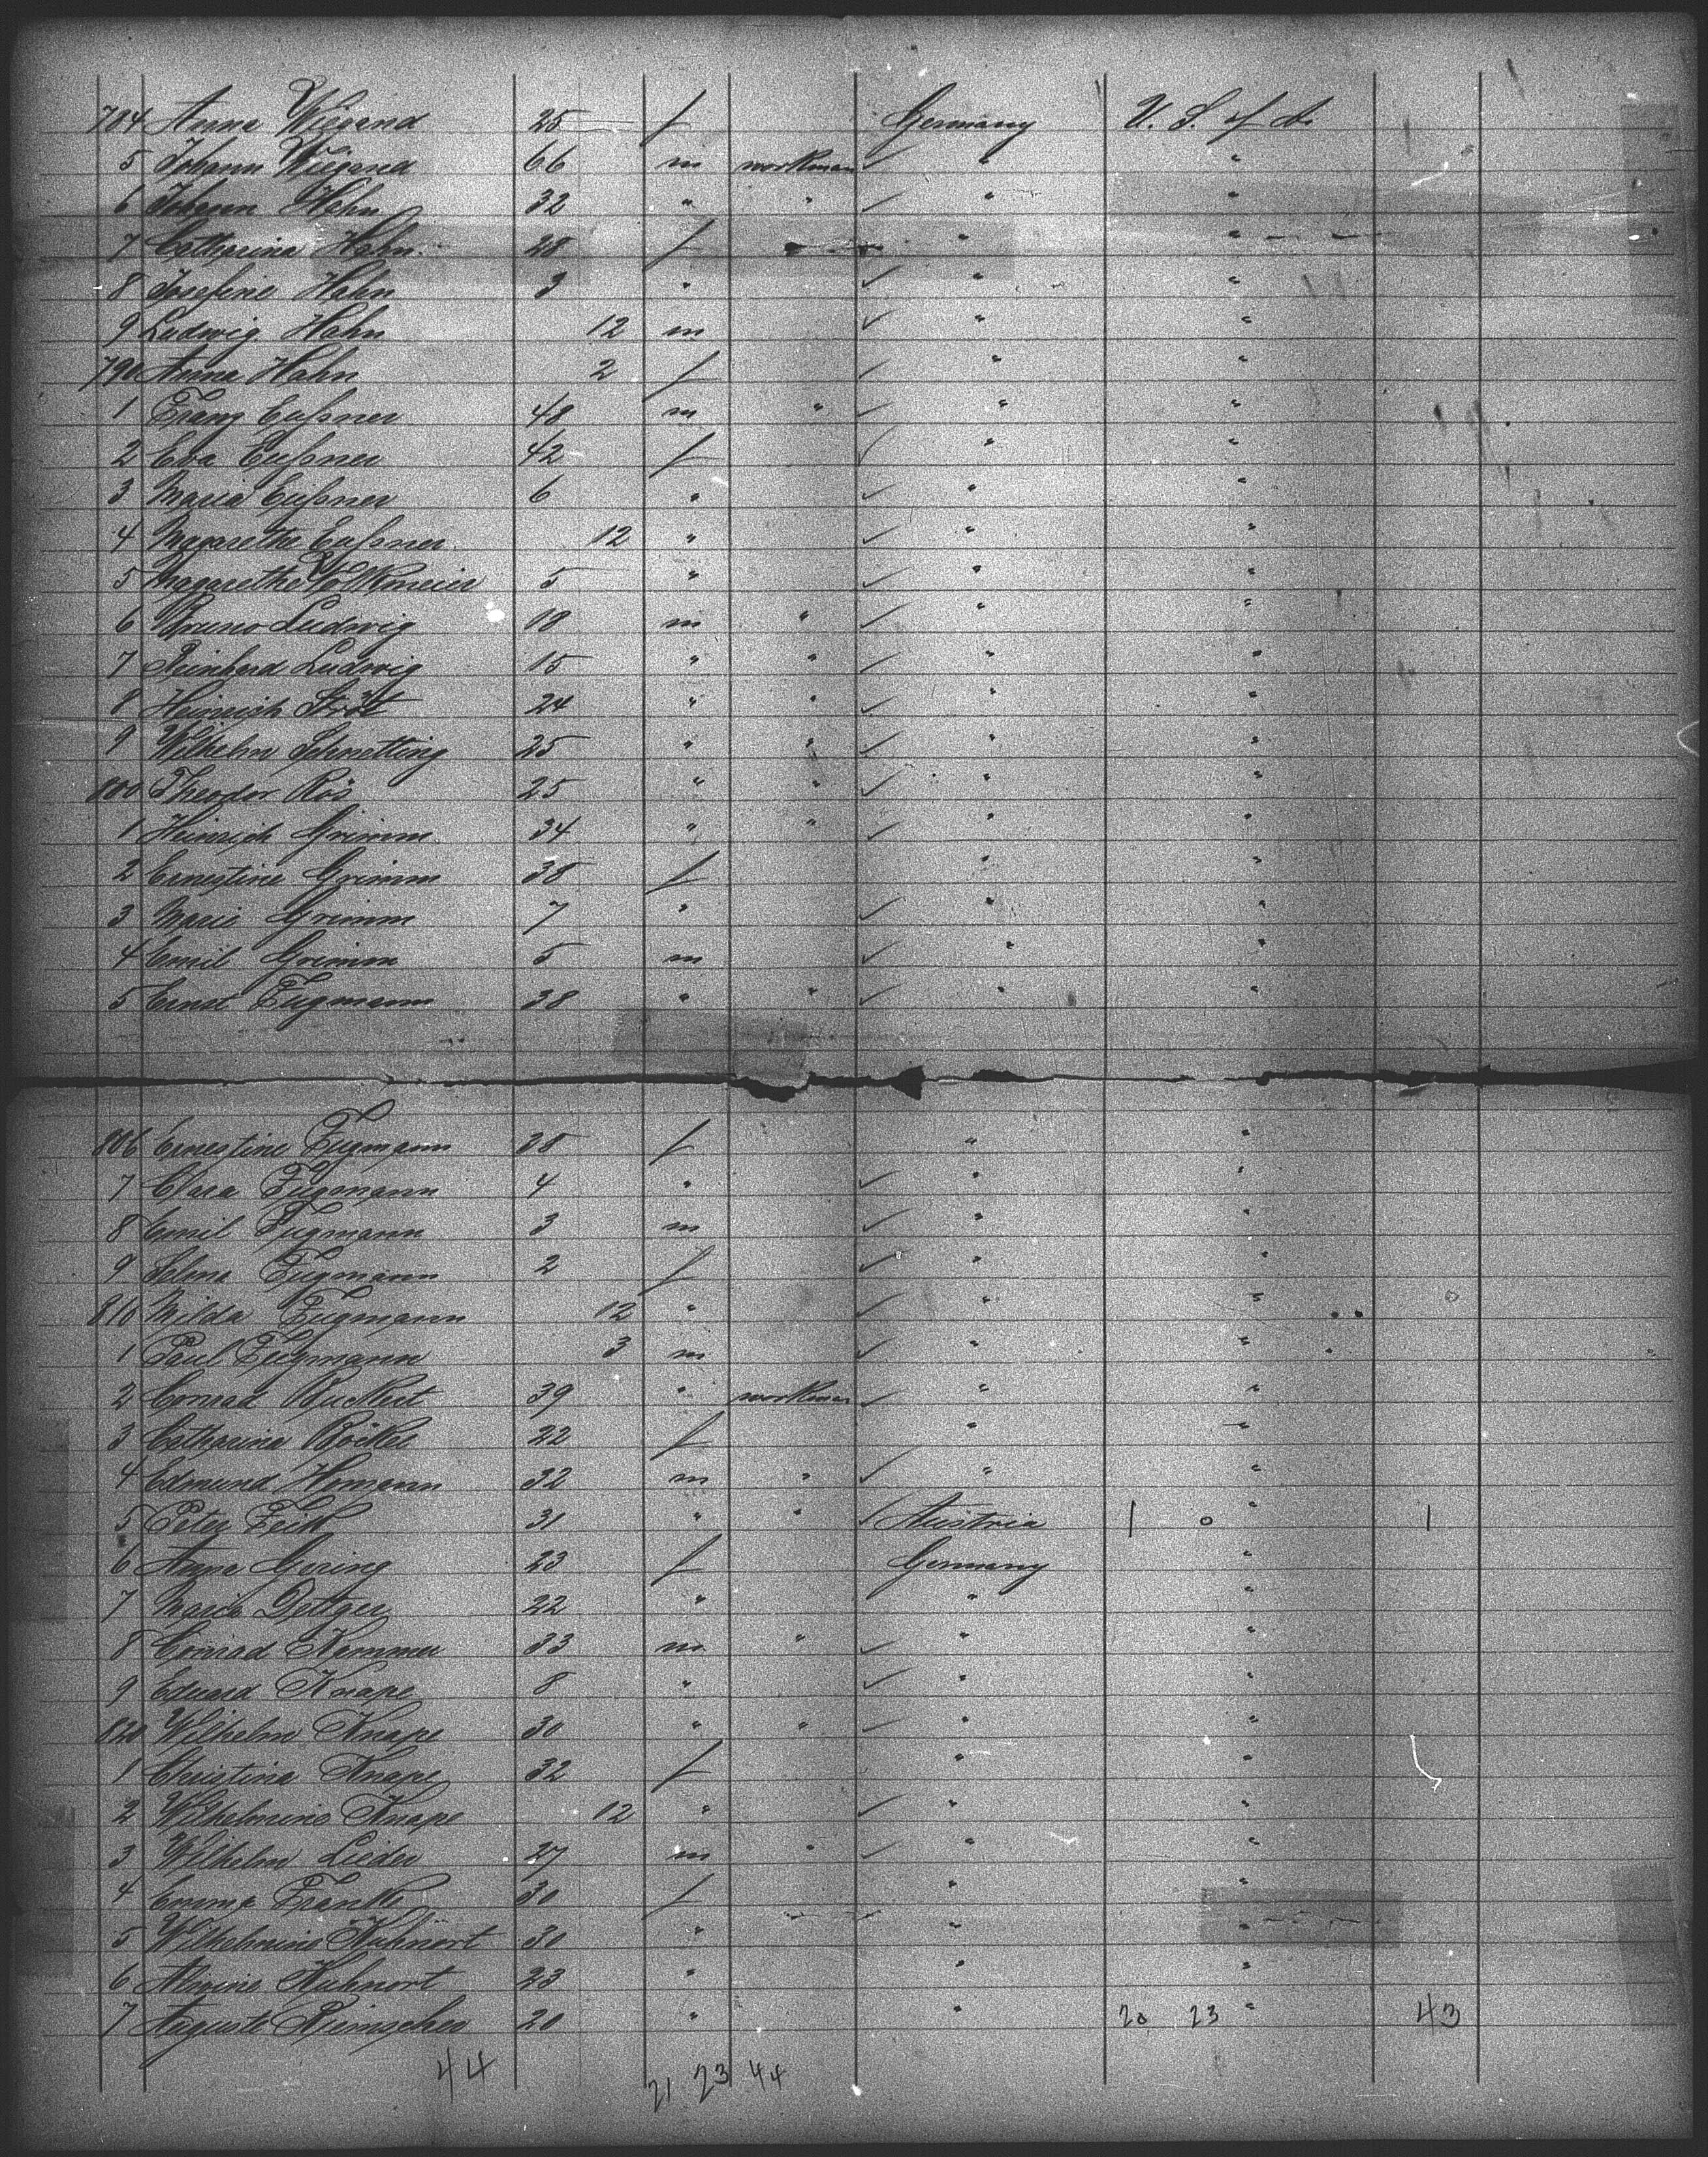 784 Anna Wiegand 25 f Germany U. S. of A.
5 Johann Wiegand 66 m workman " "
6 Johann Hahn 32 " " " "
7 Catharina Hahn. 28 f " "
8 Josefine Hahn 3 " " "
9 Ludwig Hahn 12 m " "
790 Anna Hahn 2 f " "
1 Franz Eußner 48 m " " "
2 Eva Eußner 42 f " "
3 Maria Eußner 6 " " "
4 Magarethe Eußner. 12 " " "
5 Magarethe Volkmeier 5 " " "
6 Bruno Ludwig 18 m " " "
7 Reinhard Ludwig 15 " " " "
8 Heinrich 24 " " " "
9 Wilhelm Schnetting 25 " " " "
800 Theodor Rös 25 " " " "
1 Heinrich Grimm 34 " " " "
2 Ernestine Grimm 38 f " "
3 Marie Grimm 7 " " "
4 Emil Grimm 5 m " "
5 Ernst Fugmann 38 " " " "
806 Ernestine Fugmann 28 f " "
7 Clara Fugmann 4 " " "
8 Emil Fugmann 3 m " "
9 Selma Fugmann 2 f " "
810 Milda Fugmann 12 " " "
1 Paul Fugmann 3 m " "
2 Conrad Ruckert 39 " workman " "
3 Catharina 22 f " "
4 Edmund Homann 32 m " " "
5 Peter 31 " " Austria 1 0 " 1
6 Anna Gering 23 f Germany "
7 Maria 22 " " "
8 Conrad Kammer 33 m " " "
9 Eduard Knape 8 " " "
820 Wilhelm Knape 30 " " " "
1 Christina Knape 32 f " "
2 Wilhelmine Knape 12 " " "
3 Wilhelm Lieder 27 m " " "
4 Emma Frank 30 f " "
5 Wilhelmine Kuhnert 30 " " "
6 Kuhnert 23 " " "
7 Auguste 20 " " 20 23 " 43
44 21 23 44